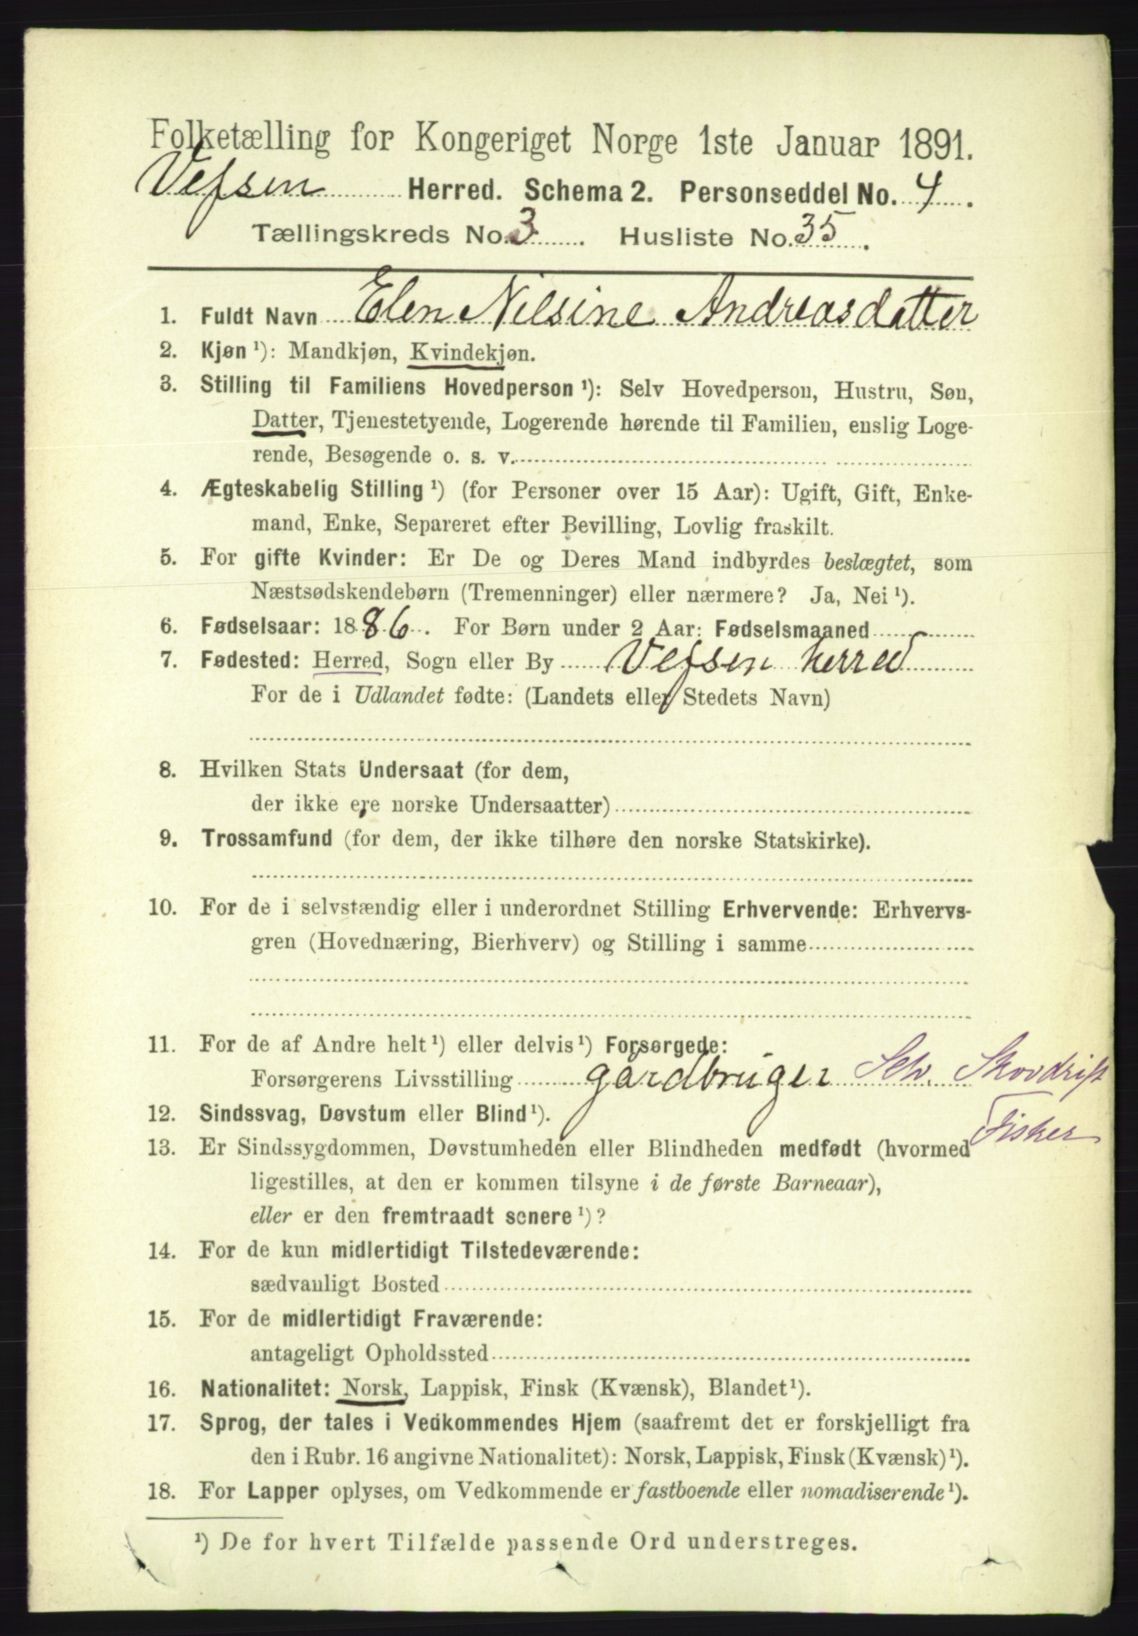 Folketælling for Kongeriget Norge 1ste Januar 1891.
Vefsen Herred. Schema 2. Personseddel No. 4.
Tællingskreds No. 3. Husliste No. 35.
1. Fuldt Navn Elen Nilsine Andreasdatter
2. Kjøn ¹): Mandkjøn, Kvindekjøn.
3. Stilling til Familiens Hovedperson ¹): Selv Hovedperson, Hustru, Søn,
Datter, Tjenestetyende, Logerende hørende til Familien, enslig Loge-
rende, Besøgende o. s. v.
4. Ægteskabelig Stilling ¹) (for Personer over 15 Aar): Ugift, Gift, Enke-
mand, Enke, Separeret efter Bevilling, Lovlig fraskilt.
5. For gifte Kvinder: Er De og Deres Mand indbyrdes beslægtet, som
Næstsødskendebørn (Tremenninger) eller nærmere? Ja, Nei ¹).
6. Fødselsaar: 1886. For Børn under 2 Aar: Fødselsmaaned
7. Fødested: Herred, Sogn eller By Vefsen herred
For de i Udlandet fødte: (Landets eller Stedets Navn)
8. Hvilken Stats Undersaat (for dem,
der ikke ere norske Undersaatter)
9. Trossamfund (for dem, der ikke tilhøre den norske Statskirke).
10. For de i selvstændig eller i underordnet Stilling Erhvervende: Erhvervs-
gren (Hovednæring, Bierhverv) og Stilling i samme
11. For de af Andre helt ¹) eller delvis ¹) Forsørgede:
Forsørgerens Livsstilling gårdbruger Selv. Skovdrift
Fisker
12. Sindssvag, Døvstum eller Blind ¹).
13. Er Sindssygdommen, Døvstumheden eller Blindheden medfødt (hvormed
ligestilles, at den er kommen tilsyne i de første Barneaar),
eller er den fremtraadt senere ¹)?
14. For de kun midlertidigt Tilstedeværende:
sædvanligt Bosted
15. For de midlertidigt Fraværende:
antageligt Opholdssted
16. Nationalitet: Norsk, Lappisk, Finsk (Kvænsk), Blandet ¹).
17. Sprog, der tales i Vedkommendes Hjem (saafremt det er forskjelligt fra
den i Rubr. 16 angivne Nationalitet): Norsk, Lappisk, Finsk (Kvænsk) ¹).
18. For Lapper oplyses, om Vedkommende er fastboende eller nomadiserende ¹).
¹) De for hvert Tilfælde passende Ord understreges.